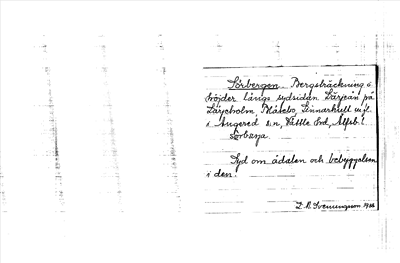 Sörbergen. Bergsträckning o
höjder längs sydsidan Lärjeån på
Lärjeholm, Linnarhult m.fl.
i Angered sn, Vättle hd, Älfsb. l.
Sörberja.
Syd om ådalen och bebyggelsen
i den.
1924